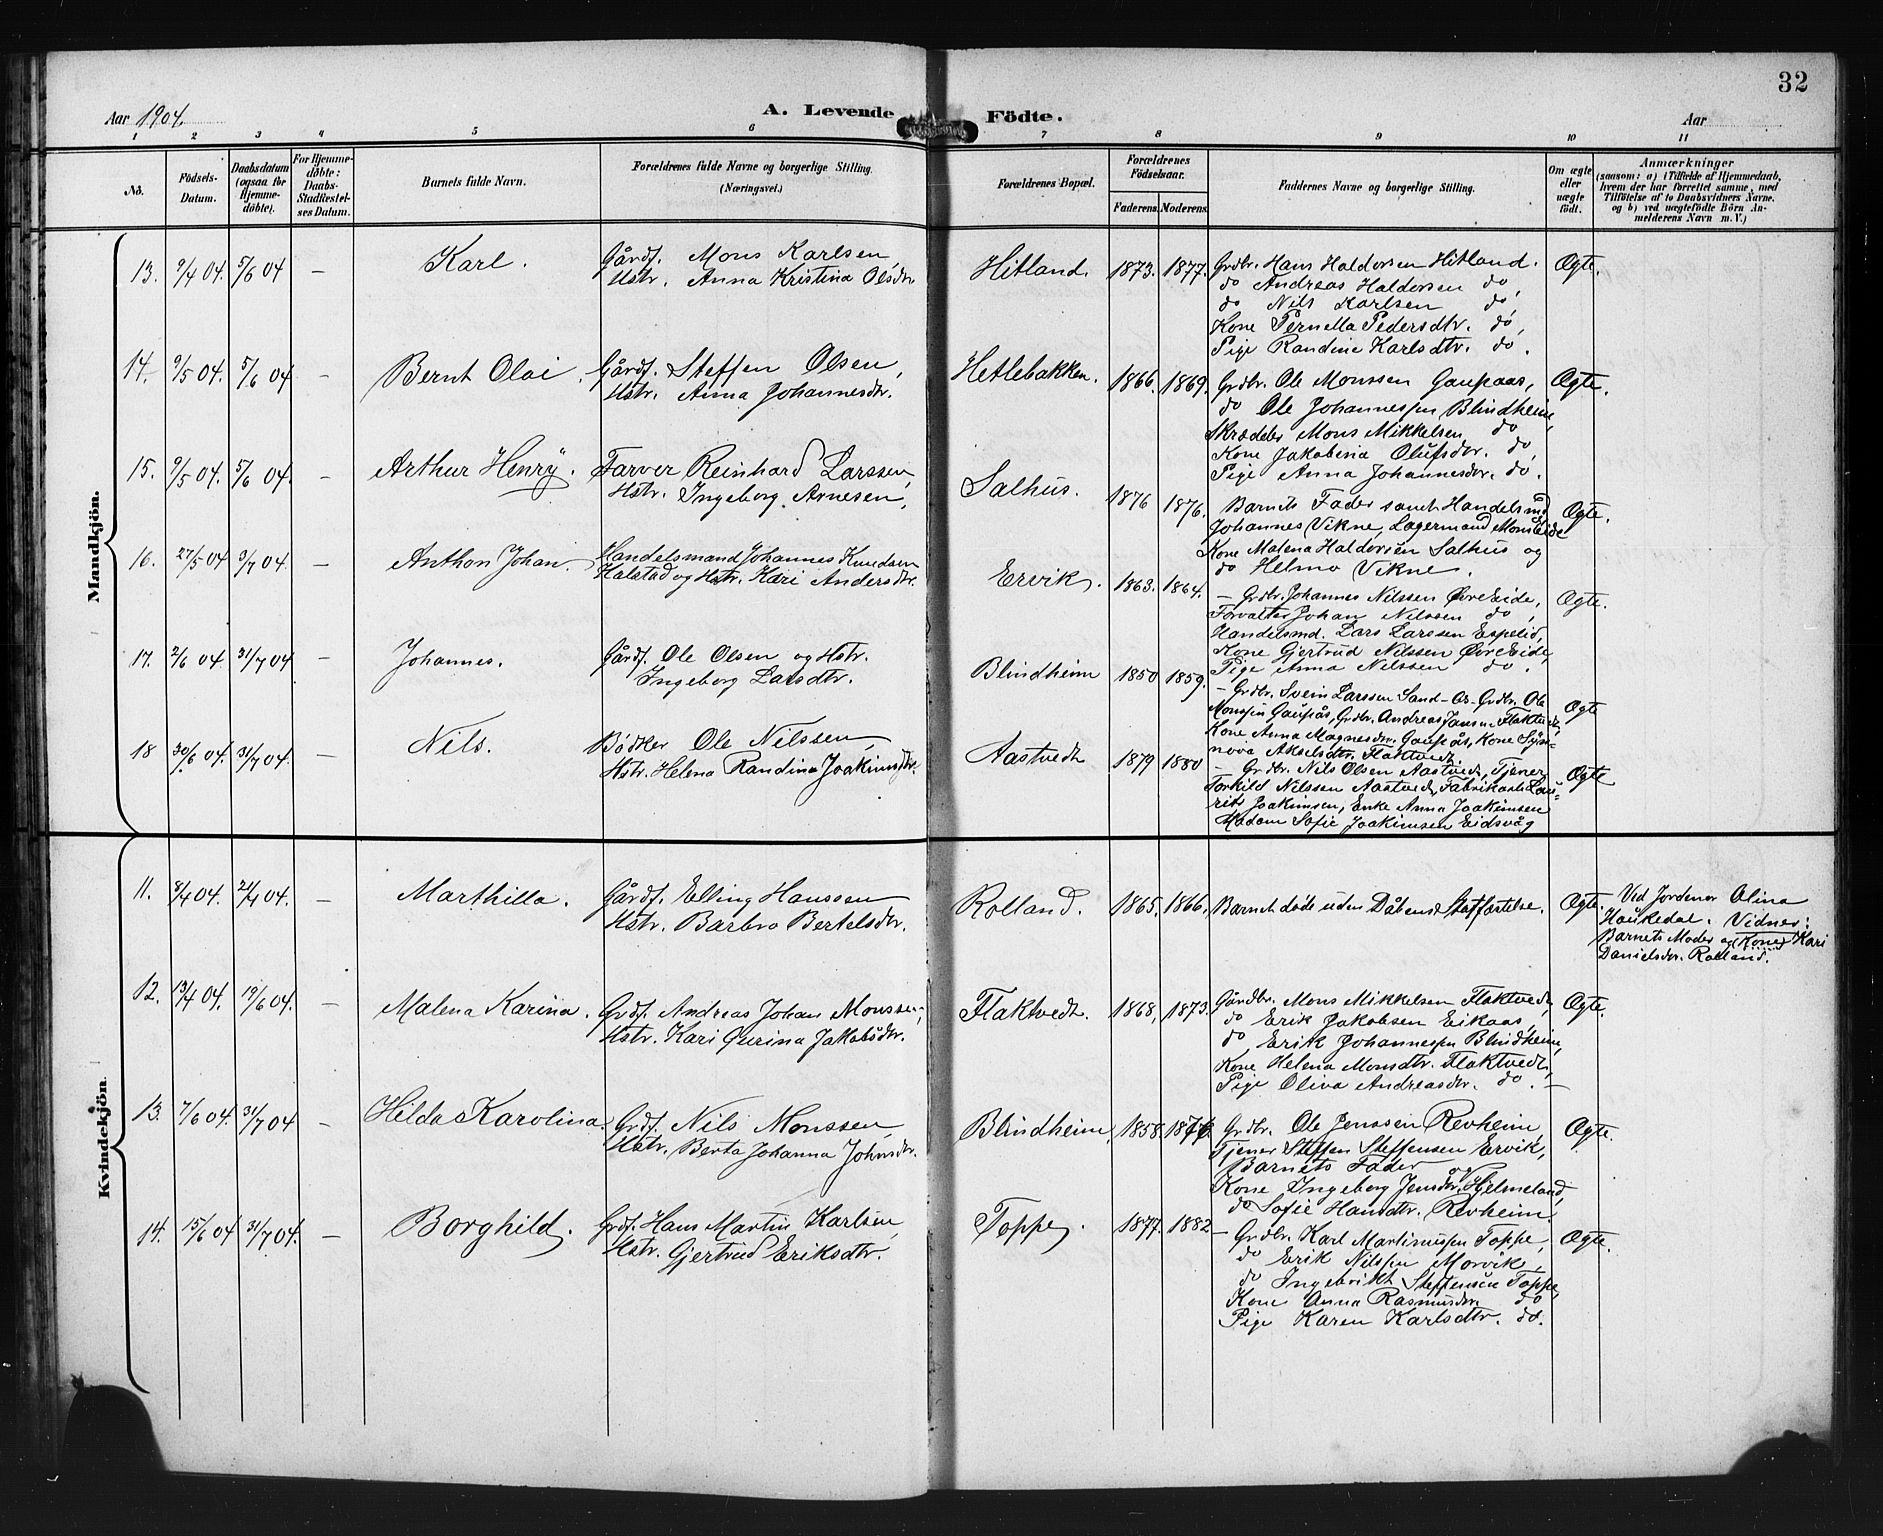 32
Aar 1904. A. Levende Födte. Aar
1 2 3 4 5 6 7 8 9 10 11
No. Födsels-Datum. Daabsdatum (ogsaa for Hjemmedöbte). For Hjemmedöbte: Daabs-Stadfestelses Datum. Barnets fulde Navn. Forældrenes fulde Navne og borgerlige Stilling. (Næringsvei.) Forældrenes Bopæl. Forældrenes Födselsaar. Faderens. Moderens. Faddernes Navne og borgerlige Stilling. Om ægte eller uægte födt. Anmærkninger (saasom: a) i Tilfælde af Hjemmedaab, hvem der har forrettet samme, med Tilföielse af to Daabsvidners Navne. og b) ved uægtefödte Börn Anmelderens Navn m. V.)
Mandkjön.
13. 9/4 04. 5/6 04 – Karl. Gårdf. Mons Karlsen
Hstr. Anna Kristina Olsdr.
Hitland. 1873. 1877. Grdbr. Hans Haldorsen Hitland. Ægte.
do Andreas Haldorsen do,
do Nils Karlsen do,
Kone Pernella Pedersdtr. do,
Pige Randine Karlsdtr. do.
14. 9/5 04. 5/6 04 – Bernt Olai. Gårdf. Steffen Olsen,
Hstr. Anna Johannesdr.
Hetlebakken. 1866. 1869. Grdbr. Ole Monssen Gaupaas, Ægte.
do Ole Johannessen Blindheim,
Skrædder Mons Mikkelsen do,
Kone Jakobina Olufsdr. do,
Pige Anna Johannesdr. do.
15. 9/5 04. 5/6 04. – Arthur Henry. Farver Reinhard Larssen,
Hstr. Ingeborg Arnesen,
Salhus. 1876 1876. Barnets Fader samt Handelsmd Ægte.
Johannes Vikne, Lagermand Mons Eide
Kone Malena Haldorsen Salhus og
do Helmo Vikne.
16. 27/5 04. 3/7 04. – Anthon Johan. Handelsmand Johannes Knudsen
Halstad og Hstr. Kari Andersdtr.
Ervik. 1863. 1864. – Grdbr. Johannes Nilssen Øvre Eide, Ægte.
Forvalter Johan Nilssen do,
Handelsmd. Lars Larssen Espelid,
Kone Gjertrud Nilssen Øvre Eide,
Pige Anna Nilssen do.
17. 2/6 04. 31/7 04 – Johannes. Gårdf. Ole Olsen og Hstr.
Ingeborg Larsdtr.
Blindheim 1850 1859. – Grdbr. Svein Larssen Sand-Os- Grdbr. Ole Ægte
Monssen Gaupås, Grdbr. Andreas Jansen Flaktved,
Kone Anna Magnesdr. Gaupås, Kone Syn-
nova Akselsdtr. Flaktvedt.
18 30/6 04. 31/7 04. – Nils. Bödker Ole Nilssen,
Hstr. Helena Randina Joakimsdtr.
Aastvedt 1879 1880 – Grdbr. Nils Olsen Aastvedt, Tjener Ægte
Torkild Nilssen Aastvedt, Fabrikarb. Lau-
rits Joakimsen, Enke Anna Joakimsen
Madam Sofie Joakimsen Eidsvåg
Kvindekjön.
11. 8/4 04. 21/4 04. – Marthilla. Gårdf. Elling Hanssen
Hstr. Barbro Bertelsdtr.
Rolland. 1865. 1866. Barnet døde uden Dåbens Stadfæstelse. Ægte. Ved Jordmor Olina
Haukedal. Vidner:
Barnets Moder og Kone Kari
Danielsdtr. Rolland.
12. 13/4 04. 19/6 04. – Malena Karina. Grdf. Andreas Johan Monssen,
Hstr. Kari Gurina Jakobsdtr.
Flaktvedt. 1868, 1873. Gårdbr. Mons Mikkelsen Flaktvedt, Ægte.
do Erik Jakobsen Eikaas,
do, Erik Johannessen Blindheim,
Kone Helena Monsdtr. Flaktvedt,
Pige Oliva Andreasdr. do. –
13. 7/6 04. 31/7 04 Hilda Karolina. Grdf. Nils Monssen,
Hstr. Berta Johanna Johnsdr.
Blindheim 1858. Grdbr. Ole Jenssen Revheim Ægte.
Tjener Steffen Steffensen Ervik,
Barnets Fader og
Kone Ingeborg Jensdtr. Hjelmeland,
do Sofie Hansdtr. Revheim.
14. 15/6 04 31/7 04. – Borghild. Grdf. Hans Martin Karlsen,
Hstr. Gjertrud Eriksdtr.
Toppe. 1877. 1882 – Grdbr. Karl Martinussen Toppe, Ægte.
do Erik Nilssen Morvik,
do Ingebrikt Steffensen Toppe,
Kone Anna Rasmusdr. do
Pige Karen Karlsdtr. do.